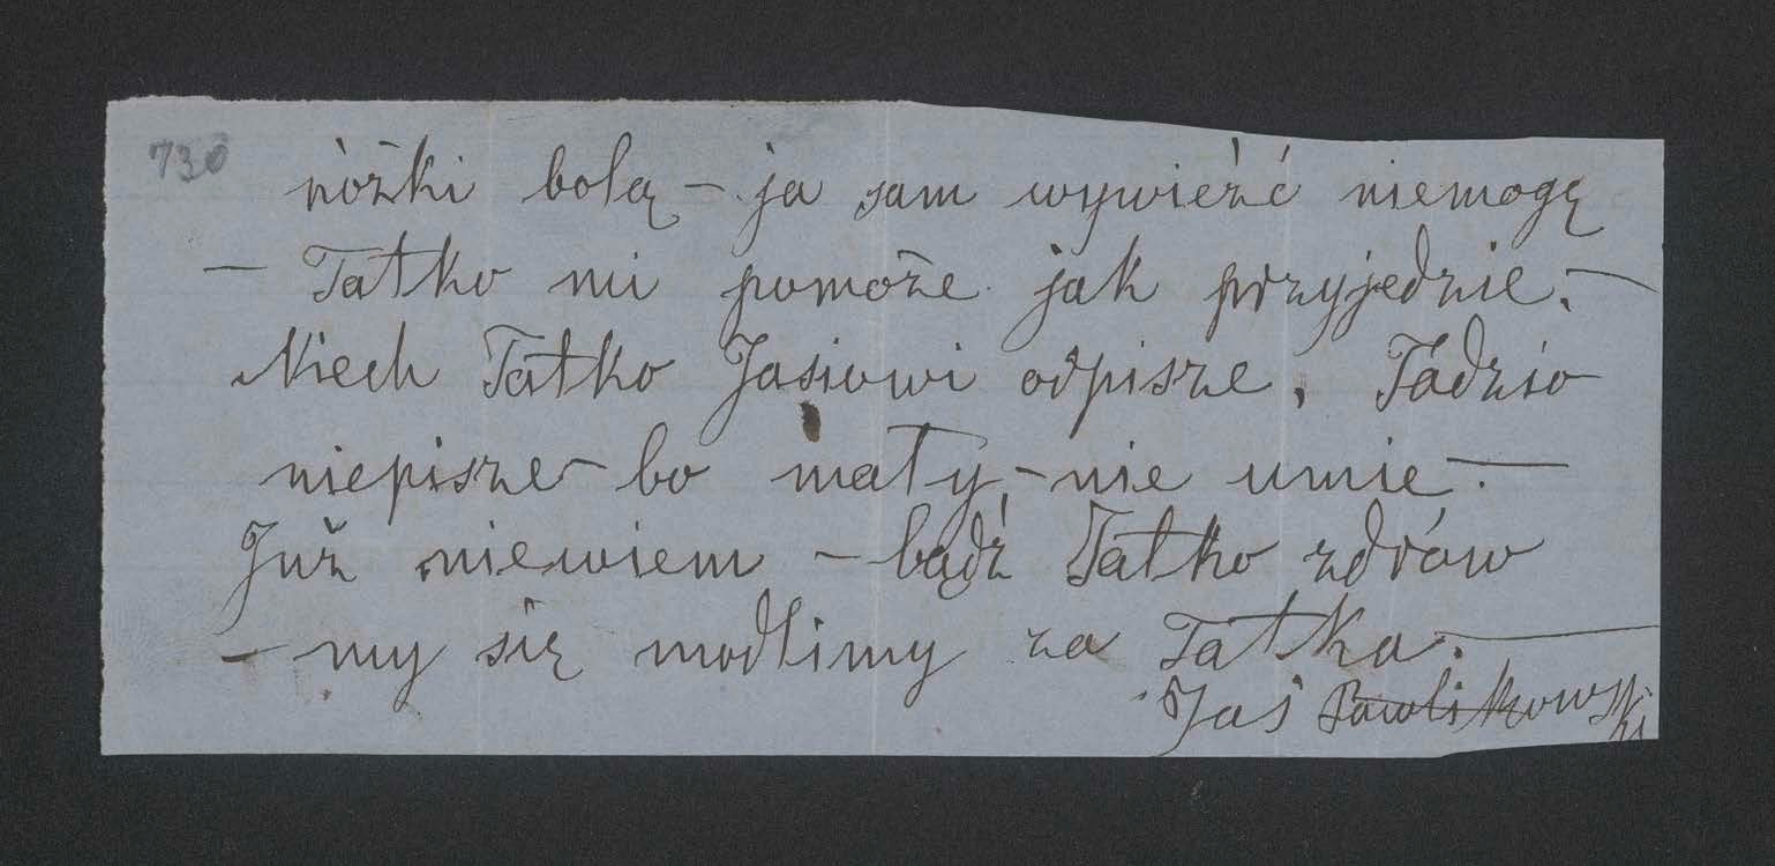 730
nóżki bolą – ja sam wywieźć niemogę
– Tatko mi pomoże jak przyjedzie. –
Niech Tatko Jasiowi odpisze, Tadzio
niepisze – bo mały, – nie umie. –
Już niewiem – bądź Tatko zdrów
– my się modlimy za Tatka. –
Jaś Pawlikowski